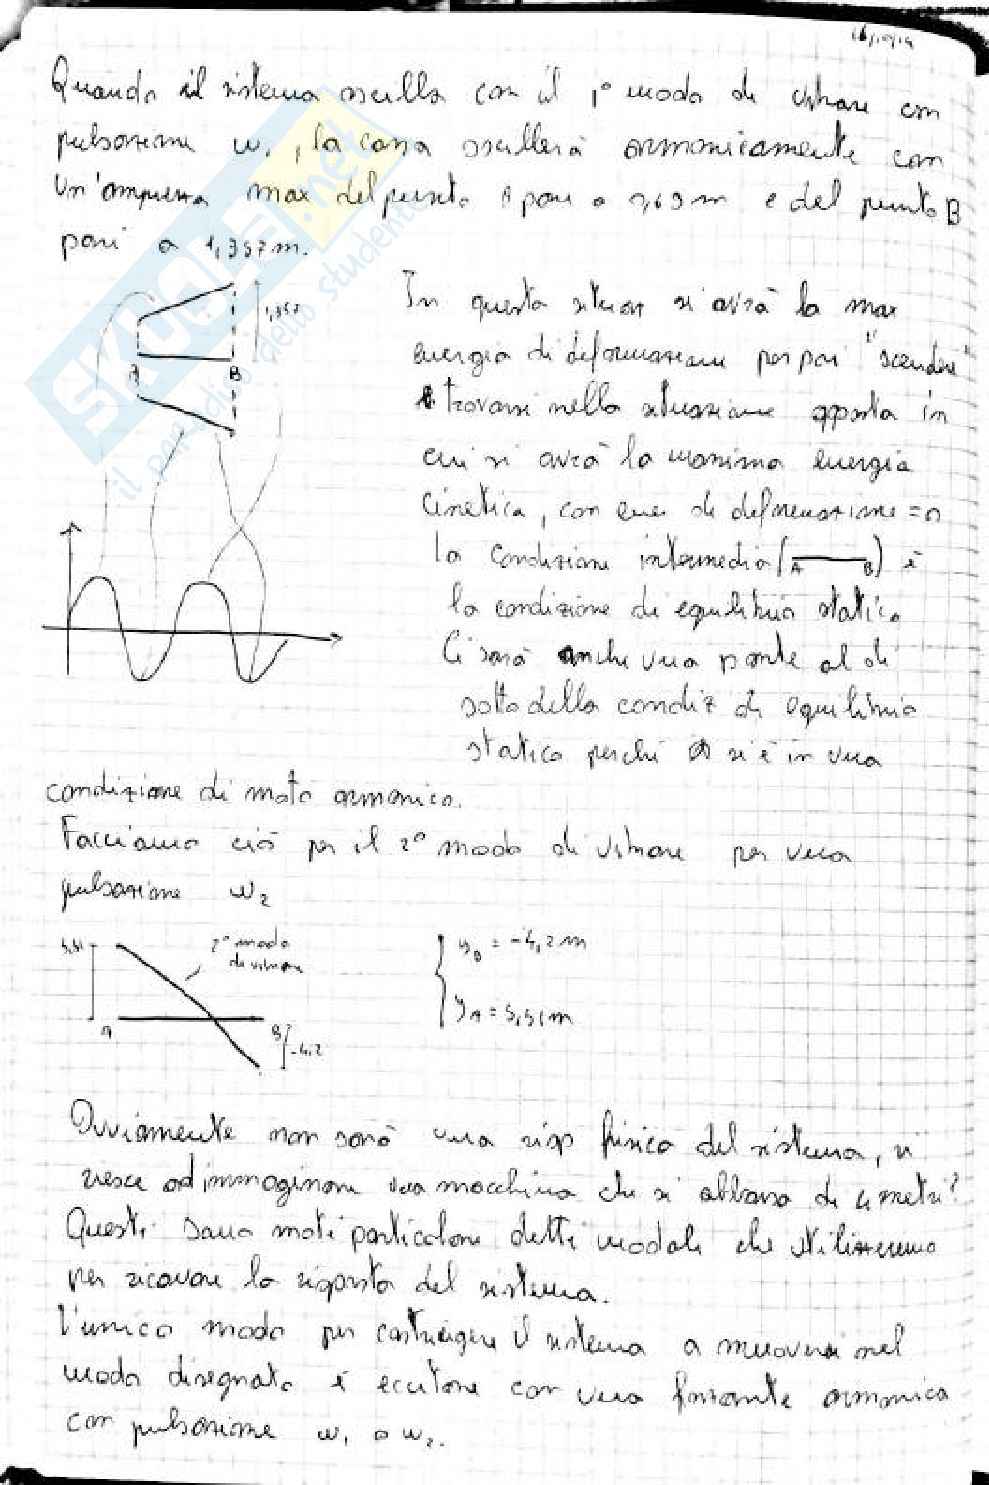 16/10/14
Quando il sistema oscilla con il 1° modo di vibrare con
pulsazione ω₁, la cassa oscillerà armonicamente con
un'ampiezza max del punto A pari a 0,69 m e del punto B
pari a 1,357 m.
SKUOLA.net
il paradiso dello studente
1,357
A B
In questa situaz si avrà la max
energia di deformazione per poi "scendere"
e trovarsi nella situazione opposta in
cui si avrà la massima energia
cinetica, con ener di deformazione = 0
la condizione intermedia (A B) è
la condizione di equilibrio statico
Ci sarà anche una parte al di
sotto della condiz di equilibrio
statico perché si è in una
condizione di moto armonico.
Facciamo ciò per il 2° modo di vibrare per una
pulsazione ω₂
5,51
2° modo
di vibrare
A B
-4,2
y_B = -4,2 m
y_A = 5,51 m
Ovviamente non sarà una risp fisica del sistema, vi
riesce ad immaginare una macchina che si abbassa di 4 metri?
Questi sono moti particolare detti modali che utilizzeremo
per ricavare la risposta del sistema.
L'unico modo per costringere il sistema a muoversi nel
modo disegnato è eccitare con una forzante armonica
con pulsazione ω₁ o ω₂.